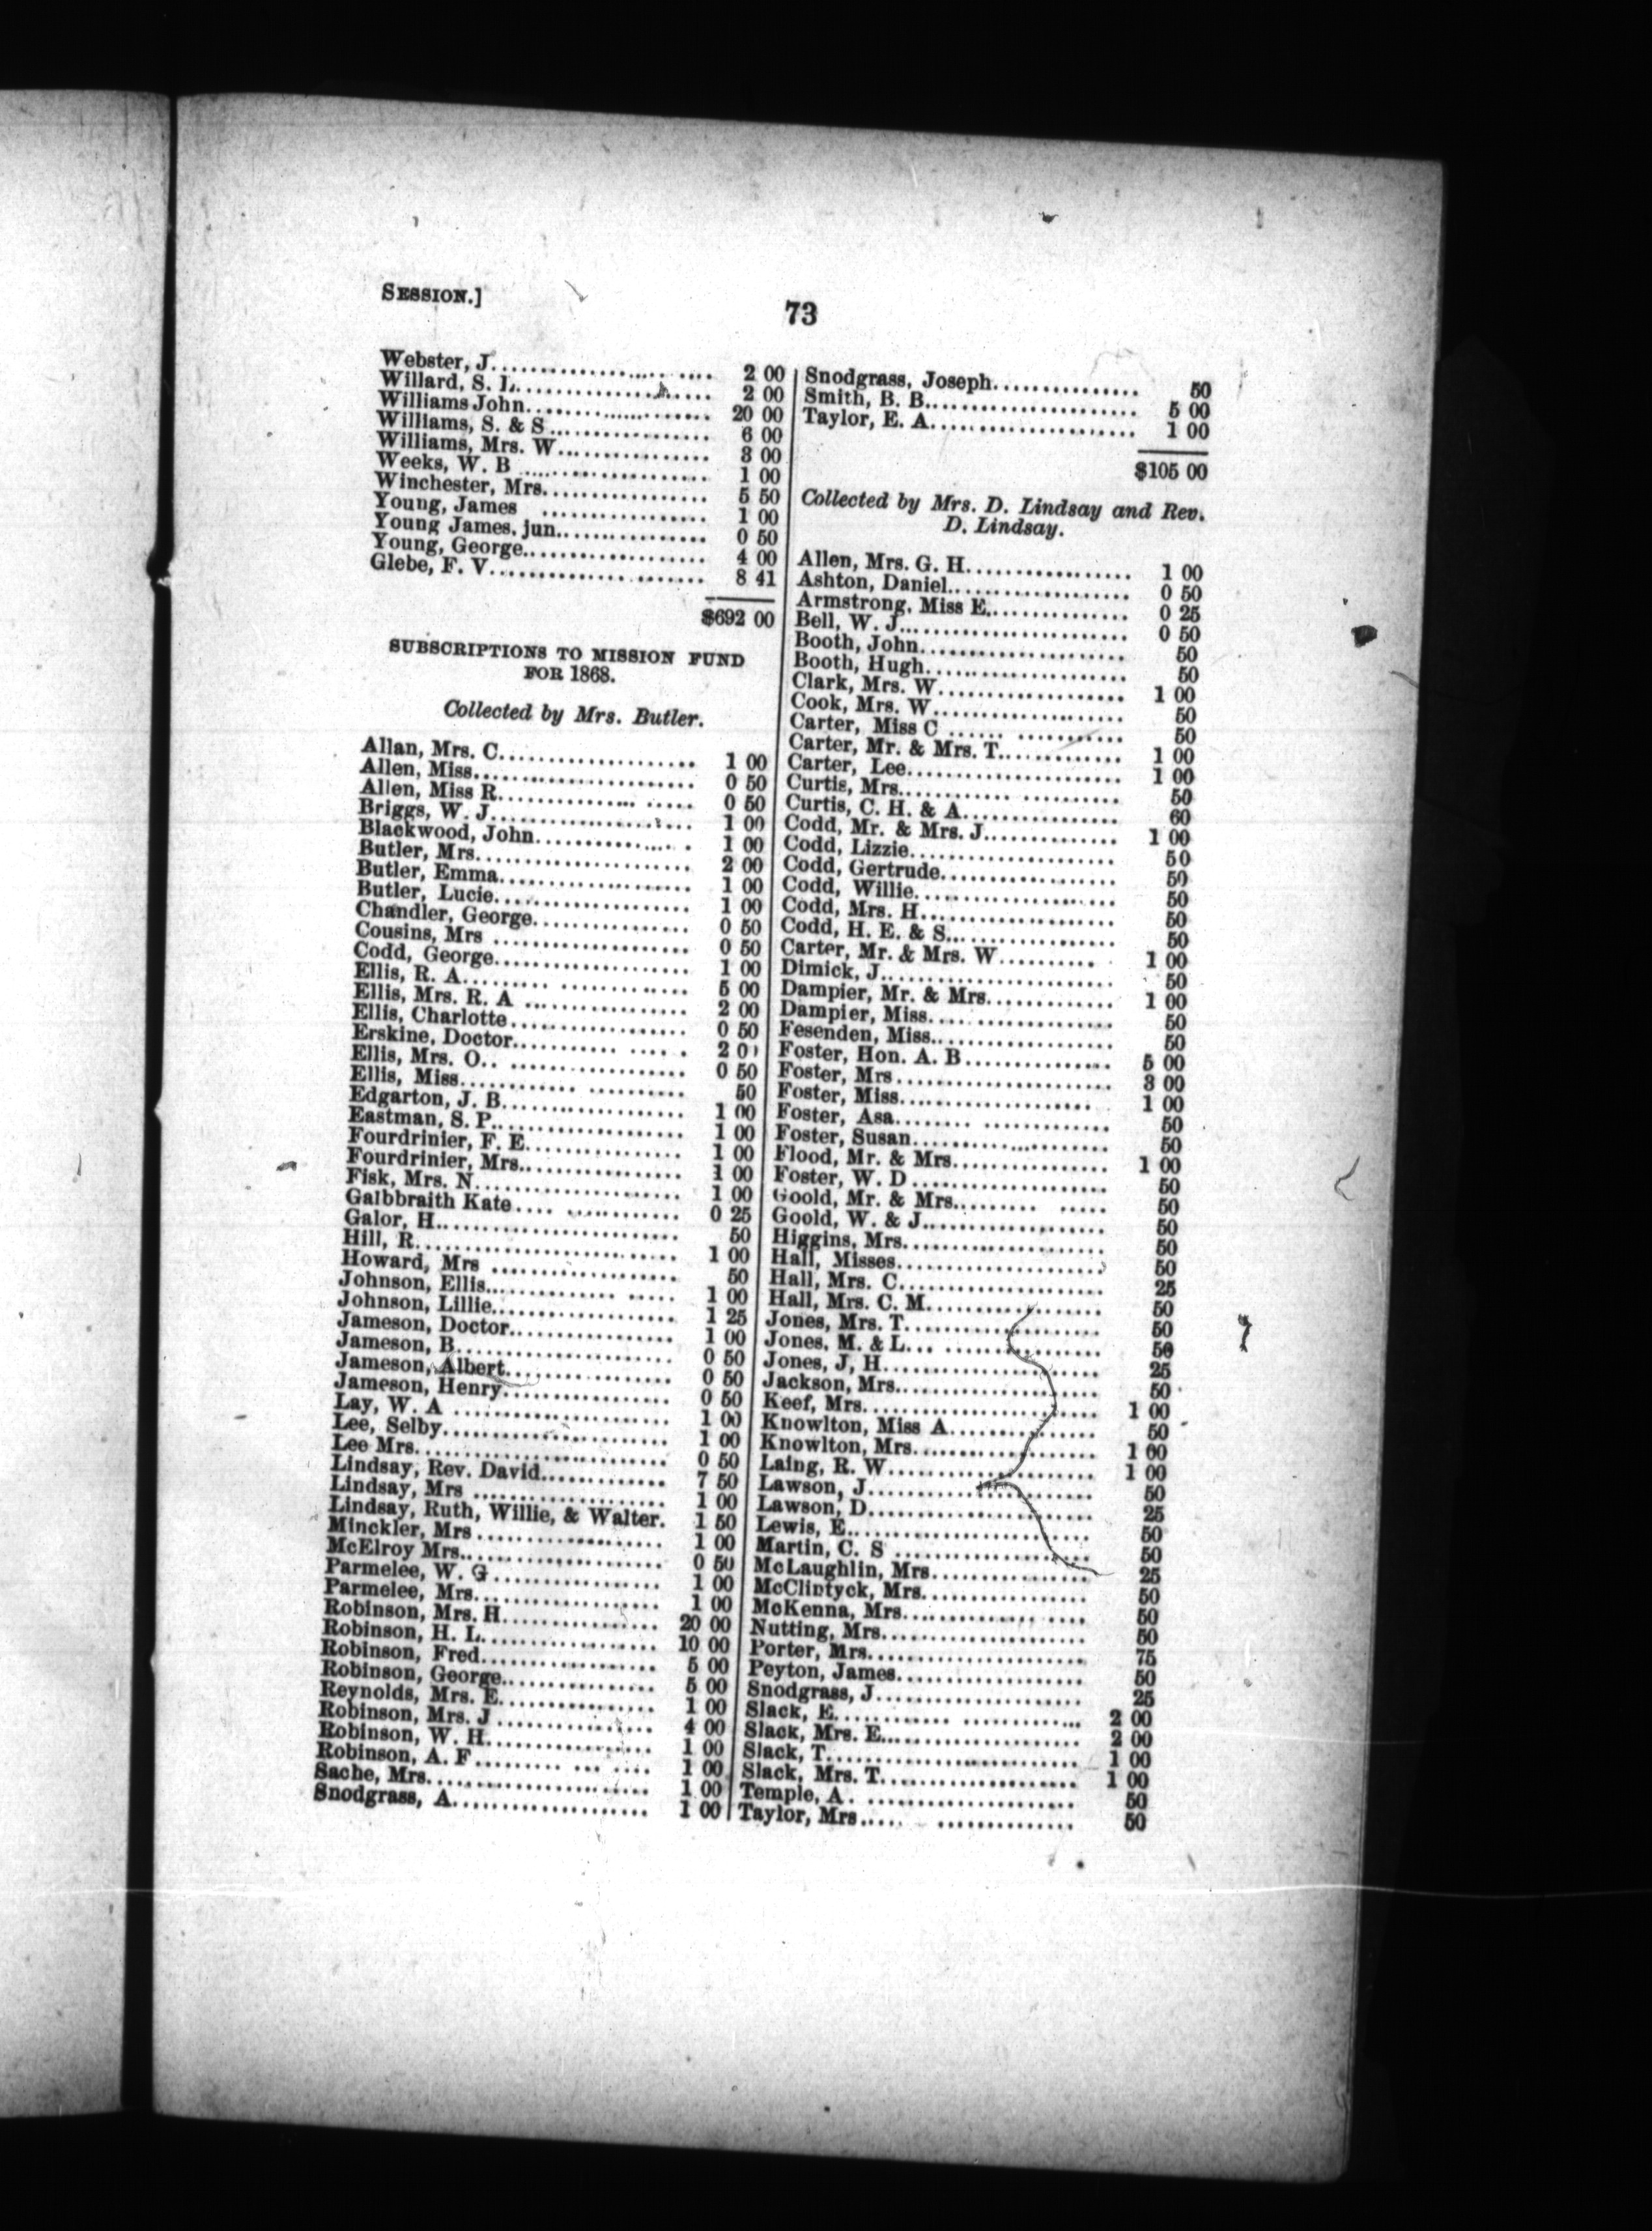 SESSION.]
73
Webster, J. 2 00
Willard, S. L. 2 00
Williams John. 20 00
Williams, S. & S. 6 00
Williams, Mrs. W. 3 00
Weeks, W. B 1 00
Winchester, Mrs. 5 50
Young, James 1 00
Young James, jun. 0 50
Young, George. 4 00
Glebe, F. V. 8 41
$692 00
SUBSCRIPTIONS TO MISSION FUND
FOR 1868.
Collected by Mrs. Butler.
Allan, Mrs. C. 1 00
Allen, Miss. 0 50
Allen, Miss R. 0 50
Briggs, W. J. 1 00
Blackwood, John. 1 00
Butler, Mrs. 2 00
Butler, Emma. 1 00
Butler, Lucie. 1 00
Chandler, George. 0 50
Cousins, Mrs 0 50
Codd, George. 1 00
Ellis, R. A. 5 00
Ellis, Mrs. R. A 2 00
Ellis, Charlotte. 0 50
Erskine, Doctor. 2 0
Ellis, Mrs. O. 0 50
Ellis, Miss. 50
Edgarton, J. B. 1 00
Eastman, S. P. 1 00
Fourdrinier, F. E. 1 00
Fourdrinier, Mrs. 1 00
Fisk, Mrs. N. 1 00
Galbbraith Kate. 0 25
Galor, H. 50
Hill, R. 1 00
Howard, Mrs 50
Johnson, Ellis. 1 00
Johnson, Lillie. 1 25
Jameson, Doctor. 1 00
Jameson, B. 0 50
Jameson, Albert. 0 50
Jameson, Henry. 0 50
Lay, W. A 1 00
Lee, Selby. 1 00
Lee Mrs. 0 50
Lindsay, Rev. David. 7 50
Lindsay, Mrs 1 00
Lindsay, Ruth, Willie, & Walter. 1 50
Minckler, Mrs 1 00
McElroy Mrs. 0 50
Parmelee, W. G 1 00
Parmelee, Mrs. 1 00
Robinson, Mrs. H. 20 00
Robinson, H. L. 10 00
Robinson, Fred. 5 00
Robinson, George. 5 00
Reynolds, Mrs. E. 1 00
Robinson, Mrs. J 4 00
Robinson, W. H. 1 00
Robinson, A. F 1 00
Sache, Mrs. 1 00
Snodgrass, A. 1 00
Snodgrass, Joseph. 50
Smith, B. B. 5 00
Taylor, E. A. 1 00
$105 00
Collected by Mrs. D. Lindsay and Rev.
D. Lindsay.
Allen, Mrs. G. H. 1 00
Ashton, Daniel. 0 50
Armstrong, Miss E. 0 25
Bell, W. J. 0 50
Booth, John. 50
Booth, Hugh. 50
Clark, Mrs. W. 1 00
Cook, Mrs. W. 50
Carter, Miss C 50
Carter, Mr. & Mrs. T. 1 00
Carter, Lee. 1 00
Curtis, Mrs. 50
Curtis, C. H. & A. 60
Codd, Mr. & Mrs. J. 1 00
Codd, Lizzie. 50
Codd, Gertrude. 50
Codd, Willie. 50
Codd, Mrs. H. 50
Codd, H. E. & S. 50
Carter, Mr. & Mrs. W. 1 00
Dimick, J. 50
Dampier, Mr. & Mrs. 1 00
Dampier, Miss. 50
Fesenden, Miss. 50
Foster, Hon. A. B. 5 00
Foster, Mrs. 3 00
Foster, Miss. 1 00
Foster, Asa. 50
Foster, Susan. 50
Flood, Mr. & Mrs. 1 00
Foster, W. D 50
Goold, Mr. & Mrs. 50
Goold, W. & J. 50
Higgins, Mrs. 50
Hall, Misses. 50
Hall, Mrs. C. 25
Hall, Mrs. C. M. 50
Jones, Mrs. T. 50
Jones, M. & L. 50
Jones, J, H. 25
Jackson, Mrs. 50
Keef, Mrs. 1 00
Knowlton, Miss A. 50
Knowlton, Mrs. 1 00
Laing, R. W. 1 00
Lawson, J. 50
Lawson, D. 25
Lewis, E. 50
Martin, C. S 50
McLaughlin, Mrs. 25
McClintyck, Mrs. 50
McKenna, Mrs. 50
Nutting, Mrs. 50
Porter, Mrs. 75
Peyton, James. 50
Snodgrass, J. 25
Slack, E. 2 00
Slack, Mrs. E. 2 00
Slack, T. 1 00
Slack, Mrs. T. 1 00
Temple, A. 50
Taylor, Mrs. 50